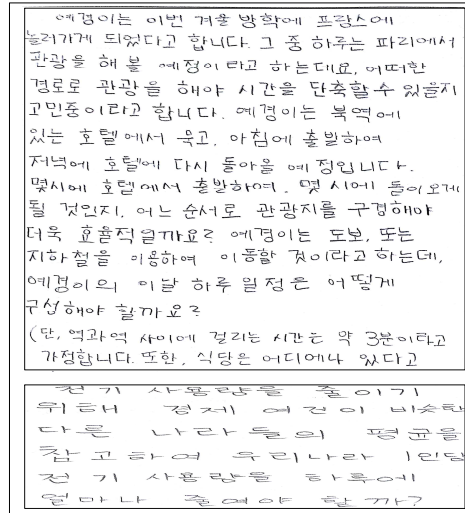 예경이는 이번 겨울 방학에 프랑스에
놀러가게 되었다고 합니다. 그 중 하루는 파리에서
관광을 해 볼 예정이라고 하는데요, 어떠한
경로로 관광을 해야 시간을 단축할 수 있을지
고민중이라고 합니다. 예경이는 북역에
있는 호텔에서 묵고, 아침에 출발하여
저녁에 호텔에 다시 돌아올 예정입니다.
몇시에 호텔에서 출발하여, 몇 시에 돌아오게
될 것인지, 어느 순서로 관광지를 구경해야
더욱 효율적일까요? 예경이는 도보, 또는
지하철을 이용하여 이동할 것이라고 하는데,
예경이의 이날 하루 일정은 어떻게
구성해야 할까요?
(단, 역과 역 사이에 걸리는 시간은 약 3분이라고
가정합니다. 또한, 식당은 어디에나 있다고
전기 사용량을 줄이기
위해 경제 여건이 비슷한
다른 나라들의 평균을
참고하여 우리나라 1인당
전기 사용량을 하루에
얼마나 줄여야 할까?